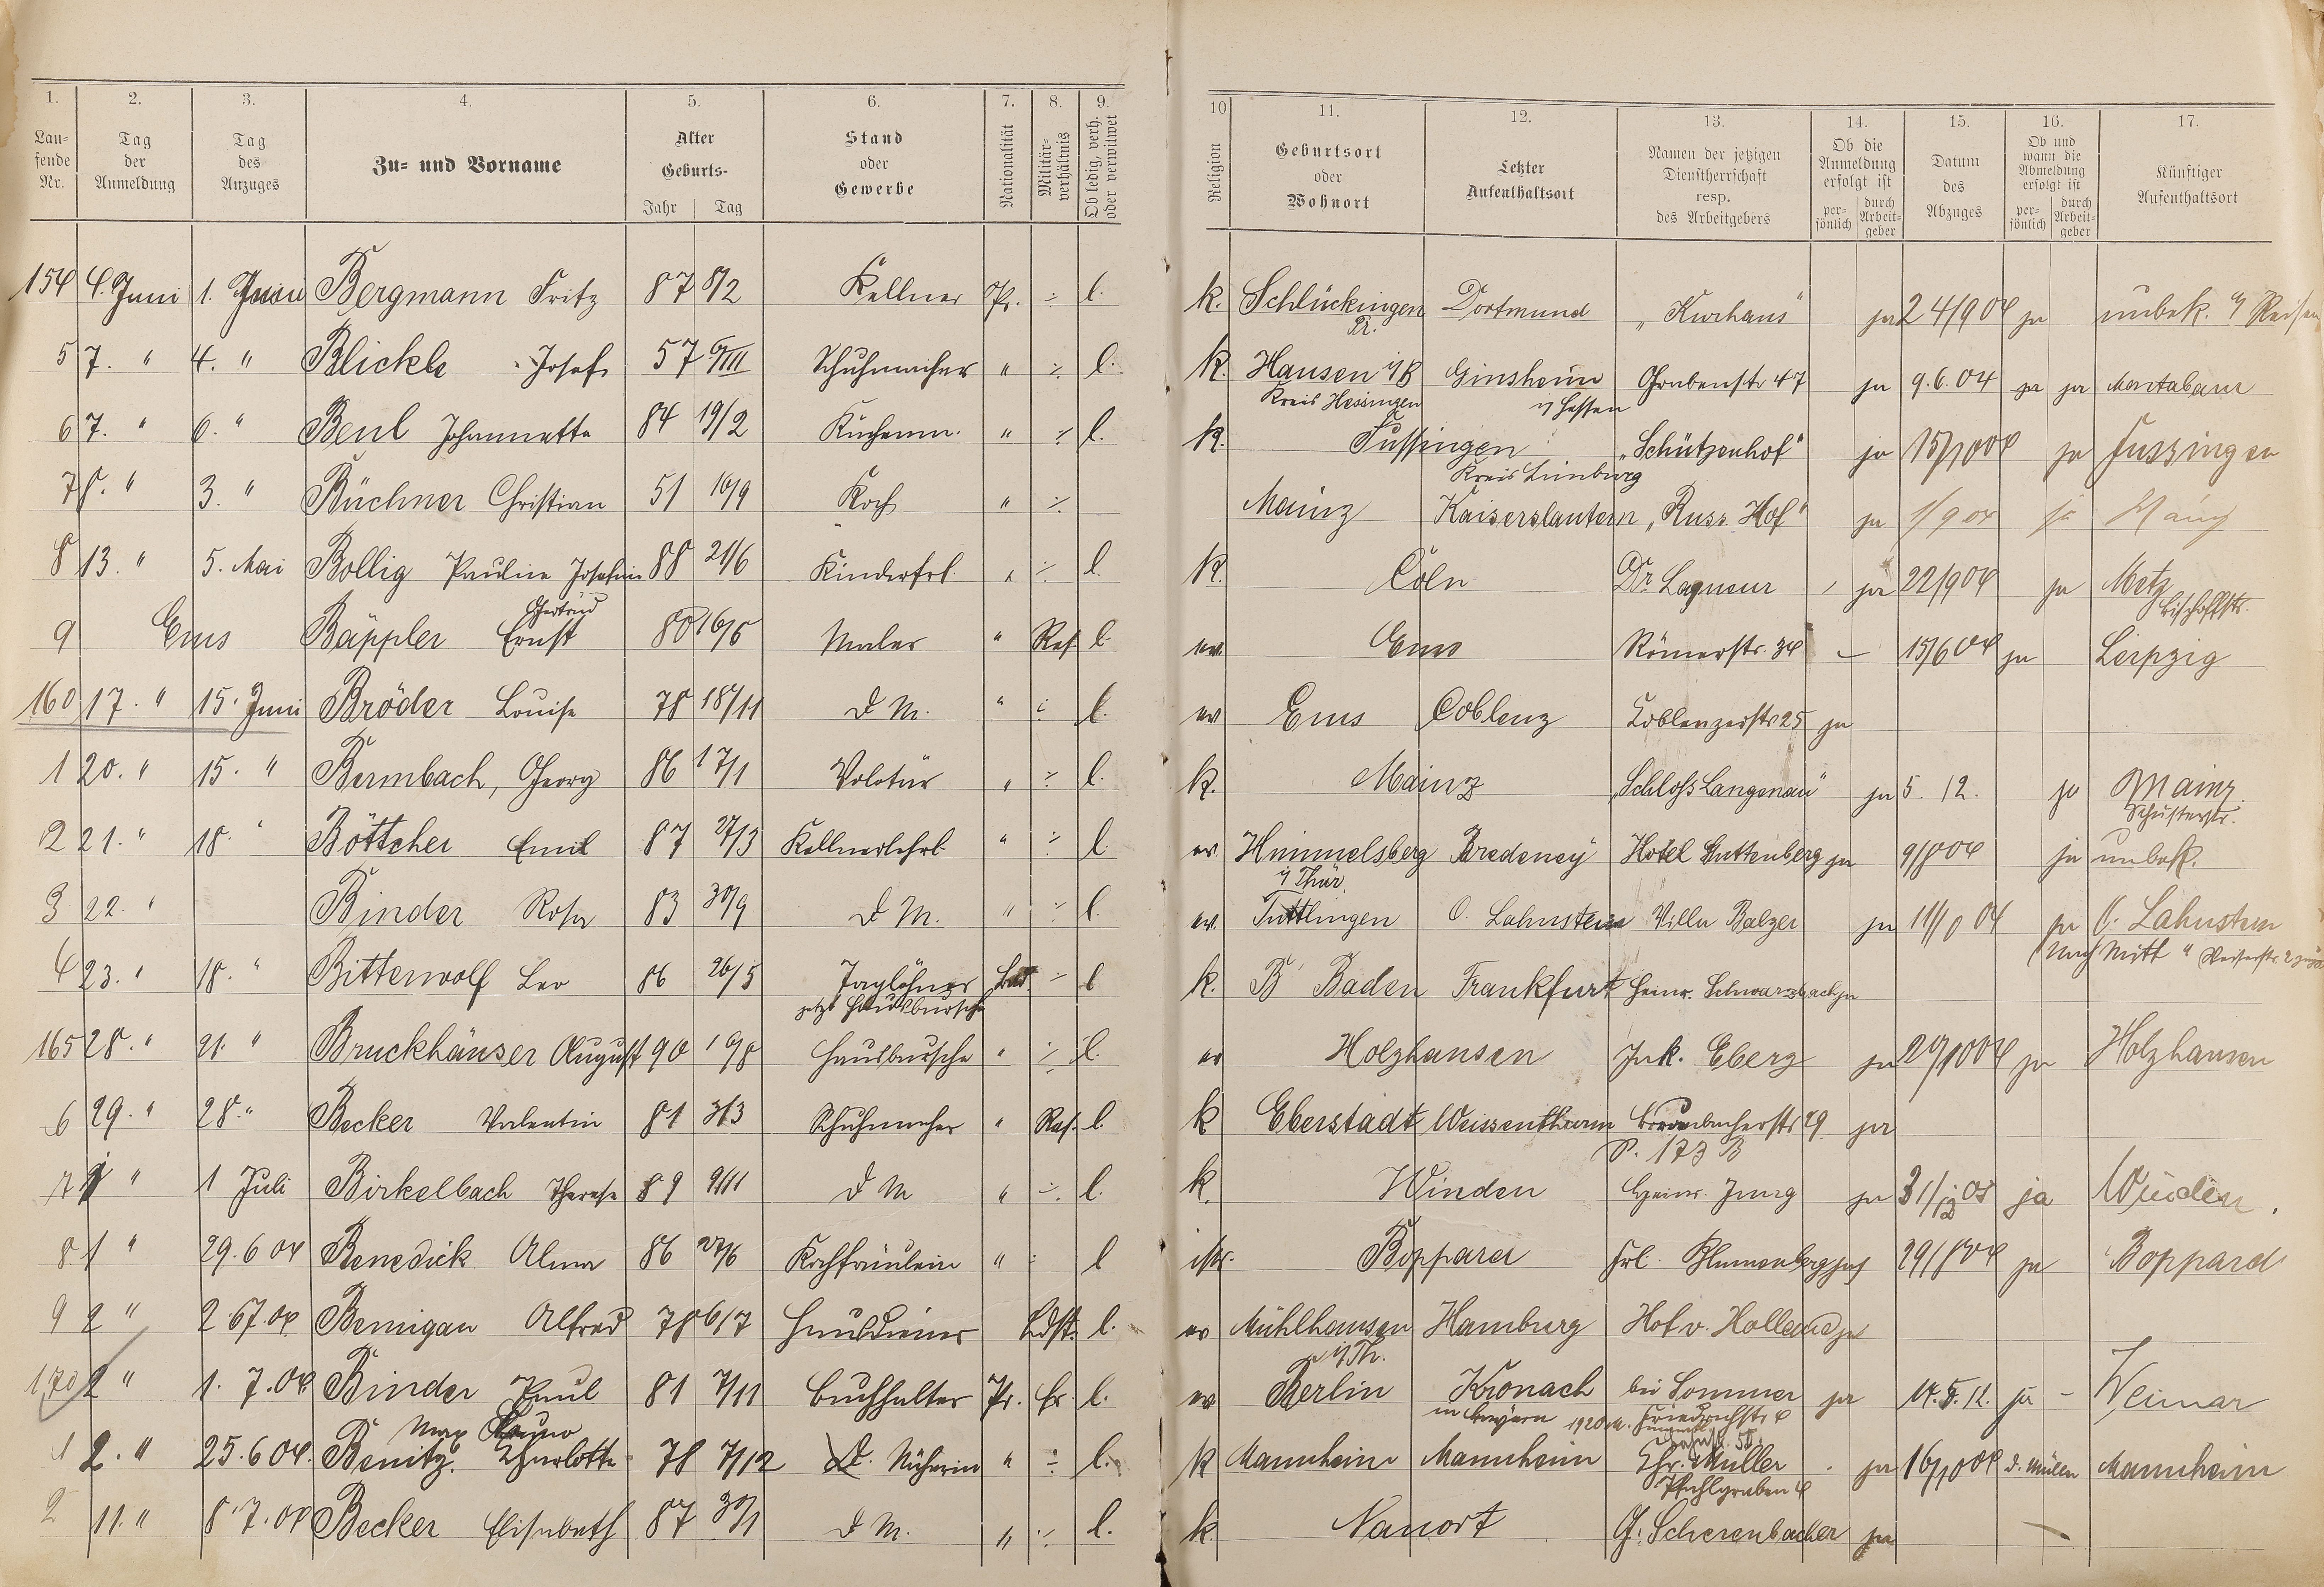 1. 2. 3. 4. 5. 6. 7. 8. 9.
Lau-
fende
Nr.
Tag
der
Anmeldung
Tag
des
Anzuges
Zu- und Vorname
Alter
Geburts-
Jahr Tag
Stand
oder
Gewerbe
Nationalität
Militär-
verhältnis
Ob ledig, verh.
oder verwitwet
10 11. 12. 13. 14. 15. 16. 17.
Religion
Geburtsort
oder
Wohnort
Letzter
Aufenthaltsort
Namen der jetzigen
Dienstherrschaft
resp.
des Arbeitgebers
Ob die
Anmeldung
erfolgt ist
per-
sönlich
durch
Arbeit-
geber
Datum
des
Abzuges
Ob und
wann die
Abmeldung
erfolgt ist
per-
sönlich
durch
Arbeit-
geber
Künftiger
Aufenthaltsort
154 4. Juni 1. Juni Bergmann Fritz 87 8/2 Kellner Pr. ÷ l. k. Schlückingen Dortmund „Kurhaus" ja 24/9 04 ja unbek. a/ Reisen
Pr.
5 7. " 4. " Blickle Josef 57 Schuhmacher " ÷ l. k. Hausen Ginsheim Grabenstr 47 ja 9.6.04 ja ja Montabaur
Kreis Hechingen i/ Hessen
6 7. " 6. " Beul Johannette 84 19/2 Küchenm. " ÷ l. k. Fussingen „Schützenhof" ja 15/10 04 ja Fussingen
Kreis Limburg
7 8. " 3. " Büchner Christian 51 10/9 Koch " ÷ Mainz Kaiserslautern „Russ. Hof" ja 1/9 04 ja Mainz
8 13. " 5. Mai Bollig Pauline Josefine 88 21/6 Kinderfrl. " ÷ l. k. Cöln Dr. Laqueur ja 22/9 04 ja Metz
Gertrud Bischoffstr.
9 Ems Bäppler Ernst 80 16/5 Maler " Res. l. ev. Ems Römerstr. 34 – 15/6 04 ja Leipzig
160 17. " 15. Juni Bröder Louise 78 18/11 D M. " ÷ l. ev Ems Coblenz Koblenzerstr 25 ja
1 20. " 15. " Bermbach, Georg 86 17/1 Volotär " ÷ l. k. Mainz „Schloß Langenau" ja 5. 12. ja Mainz
Schusterstr.
2 21. " 18. " Böttcher Emil 87 27/3 Kellnerlehrl. " ÷ l. ev. Himmelsberg Bredeney Hotel Guttenberg ja 9/8 04 ja unbek.
i/ Thür.
3 22. " Binder Rosa 83 30/9 D M. " ÷ l. ev. Tuttlingen O. Lahnstein Villa Balzer ja 04 ja O. Lahnstein
4 23. " 18. " Bitterwolf Leo 86 26/5 Taglöhner Bad. ÷ l k. B' Baden Frankfurt Heinr. Schwarzbach ja
jetzt Hausbursche
165 28. " 21. " Bruckhäuser August 90 10/8 Hausbursche " ÷ l. ev Holzhausen Jak. Eberz ja 20/10 04 ja Holzhausen
6 29. " 28. " Becker Valentin 81 3/3 Schuhmacher " Res. l. k Eberstadt Weissenthurm 29 ja
P. 173 B
7 1 " 1 Juli Birkelbach Therese 89 9/11 D M " ÷ l. k. Winden Heinr. Jung ja 31/12 05 ja Winden.
8. 1 " 29.6 04 Benedick Alma 86 27/6 Kochfräulein " ÷ l isr. Boppard Frl. Blumenberg ja 29/8 04 ja Boppard
9 2 " 2 6 7.04 Bemigau Alfred 78 6/7 Hausdiener Ldst. l. ev Mühlhausen Hamburg Hof v. Holland ja
i/Th.
170 2 " 1. 7. 04 Binder Paul 81 7/11 Buchhalter Pr. Er. l. ev Berlin Kronach bei Sommer ja 14.5.12. ja – Weimar
Max Bruno in Bayern Friedrichstr 4
1 2. " 25.6 04. Benitz. Charlotte 78 7/12 D. Näherin " ÷ l. k Mannheim Mannheim Chr. Müller ja 16/10 04 d. Müller Mannheim
Pfuhlgraben 4
2 11. " 8 7. 04 Becker Elisabeth 87 30/1 D M. " ÷ l. k Nauort G. Scherenbacher ja